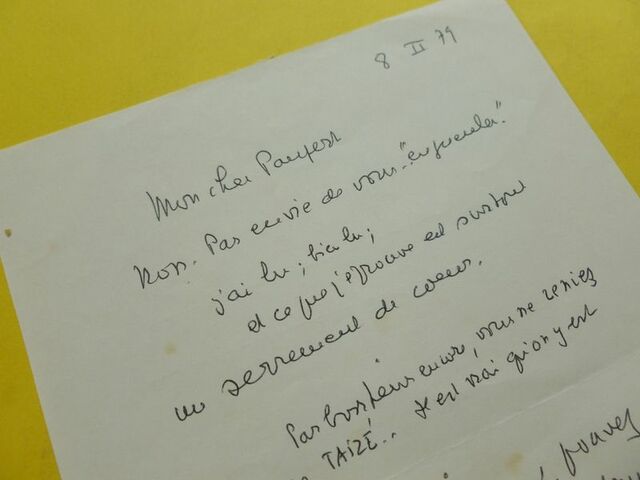 8 II 79
Mon cher Paupert
Non. Pas envie de vous "engueuler".
j'ai lu; bien lu;
et ce que j'éprouve est surtout
un serrement de coeur.
Par bonheur encore, vous ne reniez
TAIZÉ.. Il est vrai qu'on y est
pouvez